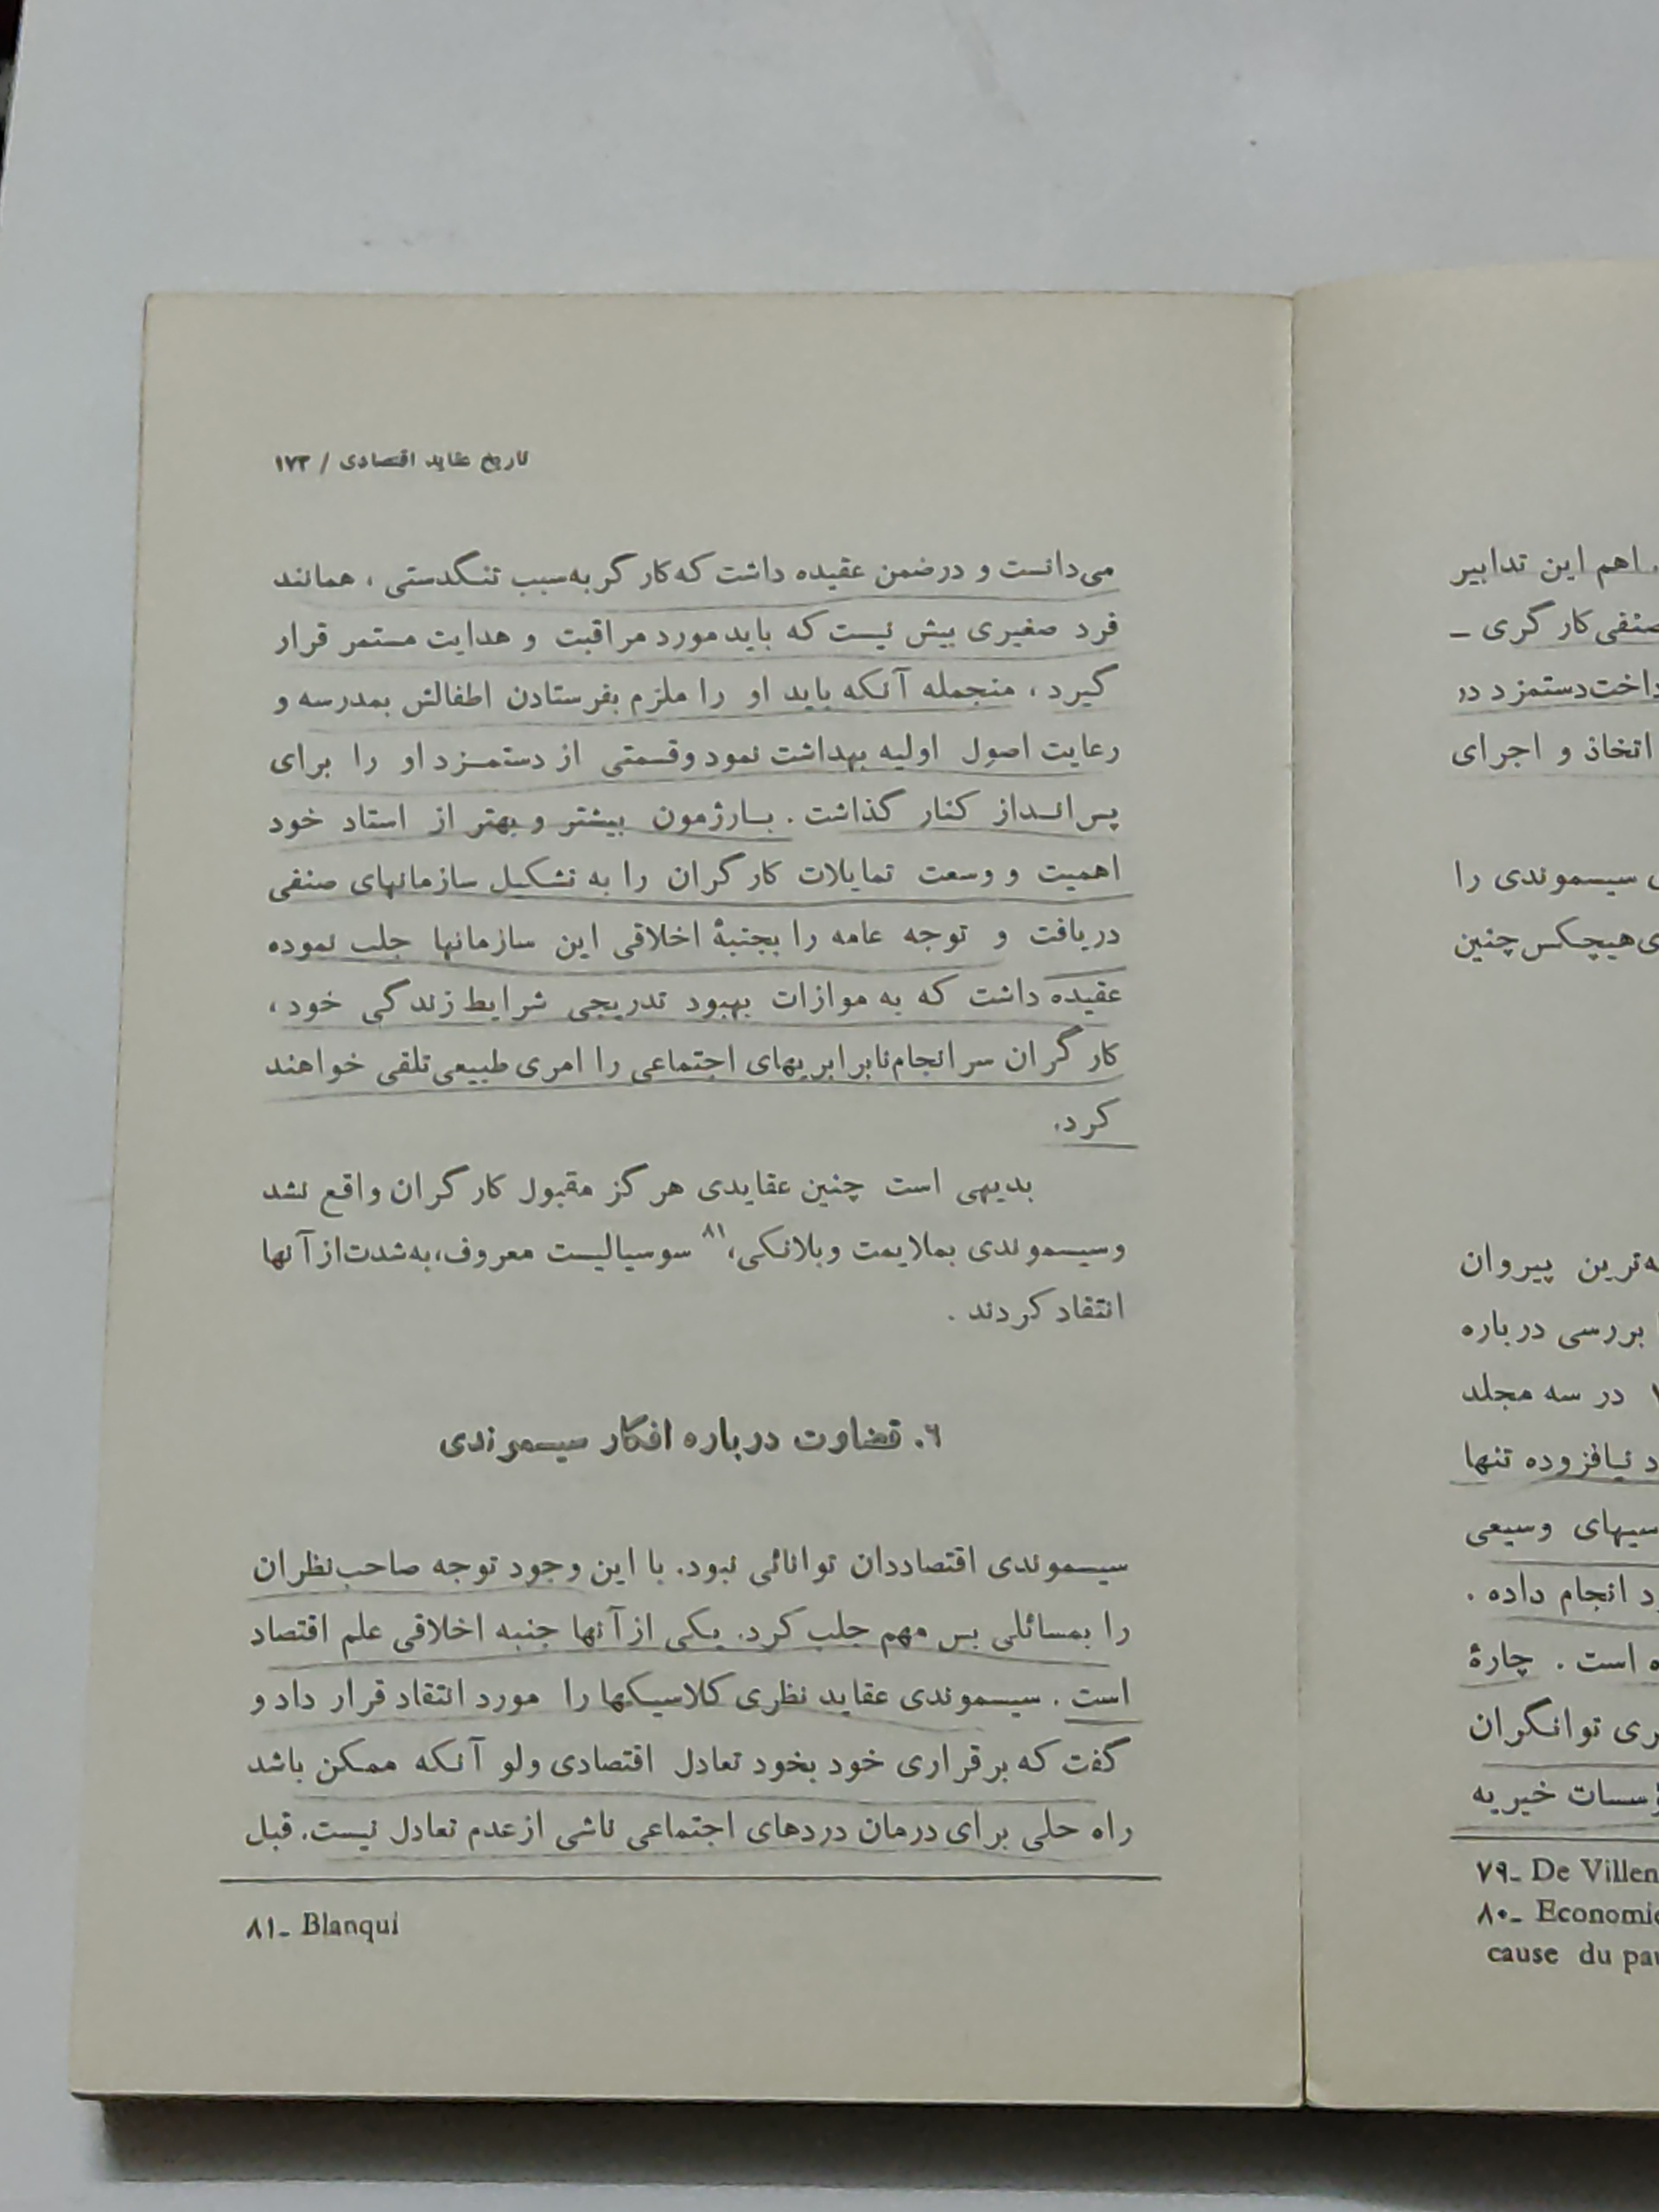 تاریخ عقاید اقتصادی / ۱۷۳
می‌دانست و درضمن عقیده داشت که کارگر به‌سبب تنگدستی ، همانند
فرد صغیری بیش نیست که باید مورد مراقبت و هدایت مستمر قرار
گیرد ، منجمله آنکه باید او را ملزم بفرستادن اطفالش بمدرسه و
رعایت اصول اولیه بهداشت نمود وقسمتی از دستمزد او را برای
پس‌انداز کنار گذاشت . بارژمون بیشتر و بهتر از استاد خود
اهمیت و وسعت تمایلات کارگران را به تشکیل سازمانهای صنفی
دریافت و توجه عامه را بجنبهٔ اخلاقی این سازمانها جلب نموده
عقیده داشت که به موازات بهبود تدریجی شرایط زندگی خود ،
کارگران سرانجام نابرابریهای اجتماعی را امری طبیعی تلقی خواهند
کرد.
بدیهی است چنین عقایدی هرگز مقبول کارگران واقع نشد
وسیسموندی بملایمت وبلانکی،۸۱ سوسیالیست معروف، به‌شدت از آنها
انتقاد کردند .
۶. قضاوت درباره افکار سیسموندی
سیسموندی اقتصاددان توانائی نبود. با این وجود توجه صاحب‌نظران
را بمسائلی بس مهم جلب کرد. یکی از آنها جنبه اخلاقی علم اقتصاد
است . سیسموندی عقاید نظری کلاسیکها را مورد انتقاد قرار داد و
گفت که برقراری خود بخود تعادل اقتصادی ولو آنکه ممکن باشد
راه حلی برای درمان دردهای اجتماعی ناشی از عدم تعادل نیست. قبل
۸۱- Blanqui
. اهم این تدابیر
صنفی کارگری -
داخت دستمزد در
اتخاذ و اجرای
سیسموندی را
هیچکس چنین
ترین پیروان
بررسی درباره
در سه مجلد
نیافزوده تنها
وسیعی
انجام داده .
است . چارهٔ
توانگران
خیریه
۷۹- De Villen
۸۰- Economie
cause du pau